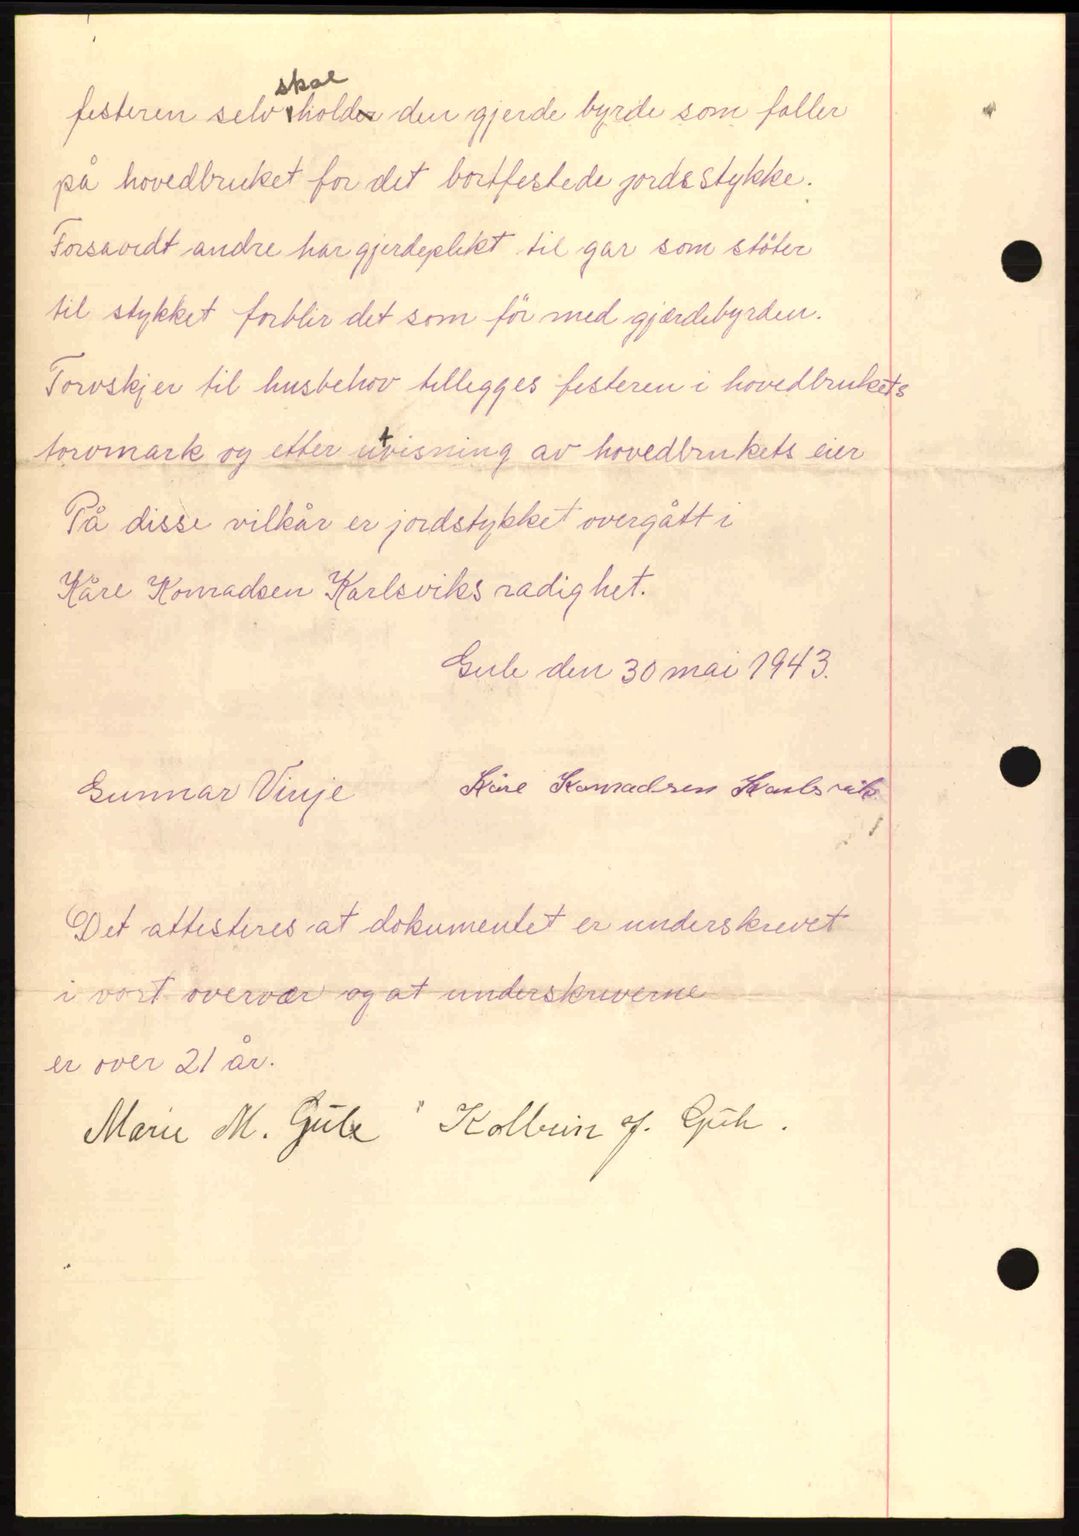 festeren selv skal holde den gjerde byrde som faller
på hovedbruket for det bortfestede jordsstykke.
Forsavidt andre har gjerdeplikt til gar som støter
til stykket forblir det som för med gjærdebyrden.
Torvskjer til husbehov tillegges festeren i hovedbrukets
torvmark og etter utvisning av hovedbrukets eier
På disse vilkår er jordstykket overgått i
Kåre Konradsen Karlsviks radighet.
Gule den 30 mai 1943.
Gunnar Vinje Kåre Konradsen Karlsvik.
Det attesteres at dokumentet er underskrevet
i vort overvær og at underskriverne
er over 21 år.
Marie M. Gule Kolbein J. Gule.